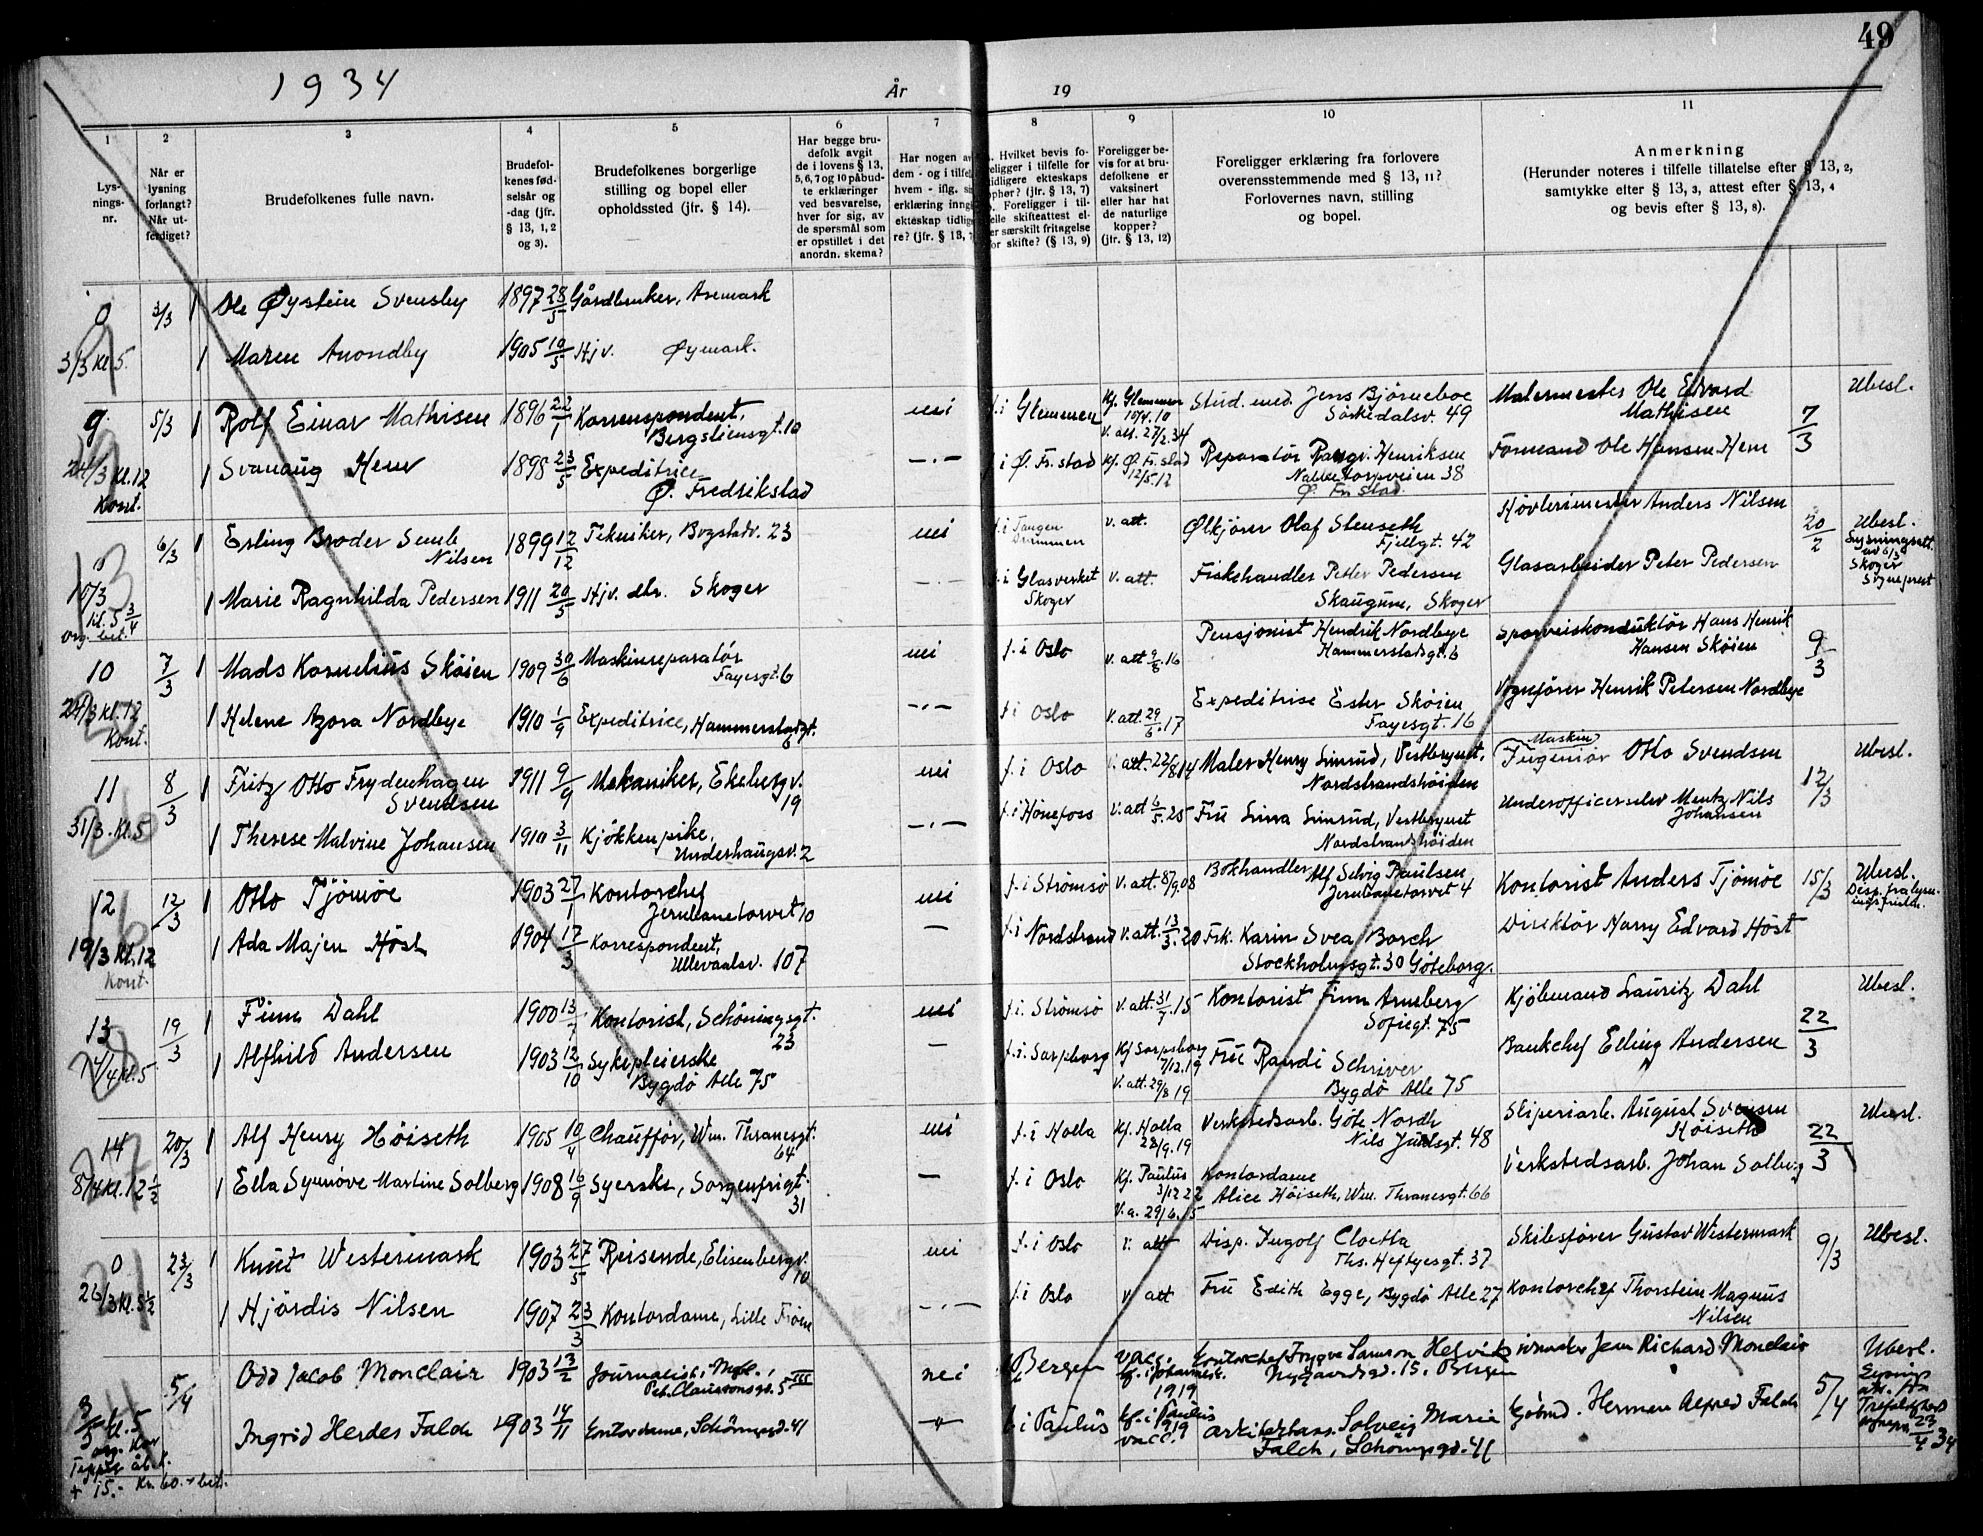 49
1934
År
19
1
2
3
4
5
6
7
8
9
10
11
Lys-
nings-
nr.
Når er
lysning
forlangt?
Når ut-
ferdiget?
Brudefolkenes fulle navn.
Brudefol-
kenes fød-
selsår og
-dag (jfr.
§ 13, 1, 2
og 3).
Brudefolkenes borgerlige
stilling og bopel eller
opholdssted (jfr. § 14).
Har begge bru-
defolk avgit
de i lovens § 13,
5, 6, 7 og 10 påbud-
te erklæringer
ved besvarelse,
hver for sig, av
de spørsmål som
er opstillet i det
anordn. skema?
Har nogen av
dem - og i tilfelle
hvem - iflg.
erklæring inngått
ekteskap tidlige-
re? (jfr. § 13,
Hvilket bevis fo-
religger i tilfelle for
tidligere ekteskaps
ophør? (jfr. § 13, 7)
Foreligger i til-
felle skifteattest el-
er særskilt fritagelse
for skifte? (§ 13, 9)
Foreligger be-
vis for at bru-
defolkene er
vaksinert
eller har hat
de naturlige
kopper?
(jfr. § 13, 12)
Foreligger erklæring fra forlovere
overensstemmende med § 13, 11?
Forlovernes navn, stilling
og bopel.
Anmerkning
(Herunder noteres i tilfelle tillatelse efter § 13, 2,
samtykke efter § 13, 3, attest efter § 13, 4
og bevis efter § 13, 8).
0 3/3 1 Ole Øystein Svensby 1897 28/5 Gårdbruker, Aremark
3/3 Kl. 5. 1 Maren Anondby 1905 10/5 Hjv. Øymark.
9 5/3 1 Rolf Einar Mathisen 1896 22/1 Korrespondent, Bergsliensgt. 10 nei f. i Glemmen Kf. Glemmen 10/4.10 v. att. 27/2.34 Stud. med. Jens Bjørneboe Sörkedalsv. 49 Malermester Ole Edvard Mathisen 7/3 Ubesl.
24/3 Kl. 12 Kont. 1 Svanaug Hem 1898 23/5 Expeditrice Ø. Fredrikstad -.- i Ø. Fr. stad Kf. Ø. Fr. stad 12/5.12 Reparatør Rangv. Henriksen Nabbetorpveien 38 Ø. Fr. Stad. Formand Ole Hansen Hem
0 6/3 1 Erling Broder Semb Nilsen 1899 12/12 Tekniker, Bogstadv. 23 nei f. i Tangen Drammen v. att. Ølkjører Olaf Stenseth Fjellgt. 42 Høvlerimester Anders Nilsen 20/2 Ubesl. Lysningsatt. av 6/3 Skoger Sogneprest
10/3 Kl. 5 3/4 org. bet. 1 Marie Ragnhilda Pedersen 1911 20/5 Hjv. dtr. Skoger -.- f. i Glasverket Skoger v. att. Fiskehandler Petter Pedersen Skaugum, Skoger Glasarbeider Peter Pedersen
10 7/3 1 Mads Kornelius Skøien 1909 30/6 Maskinreparatör Fayesgt. 6 nei f. i Oslo v. att 9/8.16 Pensjonist Hendrik Nordbye Hammerstadsgt. 6 Sporveiskonduktör Hans Henrik Hansen Skøien 9/3
24/3 Kl. 12 Kont. 1 Helene Azora Nordbye 1910 1/9 Expeditrice, Hammerstadgt. 6 -.- f. i Oslo v. att. 29/6.17 Expeditrise Ester Skøien Fayesgt. 16 Vognfører Henrik Petersen Nordbye
11 8/3 1 Fritz Otto Frydenhagen Svendsen 1911 9/9 Mekaniker, Ekebergv. 19 nei f. i Oslo v. att. 22/8 14 Maler Henry Simrud, Vestbrynet, Nordstrandshöiden Maskin Ingeniør Otto Svendsen 12/3 Ubesl.
31/3. Kl. 5 1 Therese Malvine Johansen 1910 3/11 Kjøkkenpike, Underhaugsv. 2 -.- f. i Hönefoss v. att 6/5.25 Fru Simrud, Vestbrynet Nordstrandshöiden Underofficerselev Mentz Nils Johansen
12 12/3 1 Otto Tjömöe 1903 27/1 Kontorchef Jernbanetorvet 10 nei f. i Strømsø v. att. 8/9.08 Bokhandler Alf Selvig Paulsen Jernbanetorvet 4 Kontorist Anders Tjömöe 15/3 Ubesl. Disp. fra lysningsfristen.
19/3 Kl. 12 Kont. 1 Ada Majen Höst 1904 17/3 Korrespondent, Ullevaalsv. 107 - f. i Nordstrand v. att. 13/3.20 Frk. Karin Svea Borch Stockholmsgt. 30 Göteborg. Direktör Harry Edvard Höst
13 19/3 1 Finn Dahl 1900 13/7 Kontorist, Schöningsgt. 23 nei f. i. Strömsö v. att. 31/7.15 Kontorist Finn Arneberg Sofiegt. 75 Kjöbmand Lauritz Dahl 22/3 Ubesl.
14/4 Kl. 5. 1 Alfhild Andersen 1903 12/10 Sykepleierske Bygdö Alle 75 - f. i. Sarpsborg Kf Sarpsborg 7/12.19 v. att. 29/8 19 Fru Randi Schriver Bygdö Alle 75 Bankchef Elling Andersen
14 20/3 1 Alf Henry Höiseth 1905 10/4 Chauffør, Wm. Thranesgt. 64 nei f. i Holla Kf. Holla 28/9.19 Verkstedsarb. Göte Nordh Nils Juelsgt. 48 Sliperiarb. August Svensen Höiseth 22/3 Ubesl.
8/4 Kl. 12 1/2 1 Ella Synnöve Martine Solberg 1908 16/9 Syerske, Sorgenfrigt. 31 - f. i Oslo Kf. Paulus 3/12 22 v. a. 29/6.15 Kontordame Alice Höiseth, Wm. Thranesgt. 66 Verkstedsarb. Johan Solberg
0 23/3 1 Knut Westermark 1903 27/5 Reisende, Elisenbergv. 10 nei f. i Oslo v. att Disp. Ingolf Cloetta Ths. Heftyesgt. 37 Skibsfører Gustav Westermark 9/3 Ubesl.
26/3 Kl. 5 1/2 1 Hjördis Nilsen 1907 23/3 Kontordame, Lille Frogn -.- f. i Oslo v att Fru Edith Egge, Bygdö Alle 27 Kontorchef Thorstein Magnus Nilsen
5/4 Odd Jacob Monclair 1903 13/2 Journalist, Pet. Claussonsgt. 5 III nei Bergen vacc. kf. i Johannesk. 1919 Kontorchef Trygve Samson Helvik Nygaardsgt. 15, Bergen Jean Richard Monclair 5/4 Ubesl.
Kl. 5 Ingrid Herdes Falch 1903 14/11 Kontordame, Schöningsgt. 41 f. i Paulus kf. i Paulus 1919 vacc. Solveig Marie Falch, Schöningsgt. 41 Herman Alfred Falch 23/4 34
+ 15.- Kr. 60.- bet.